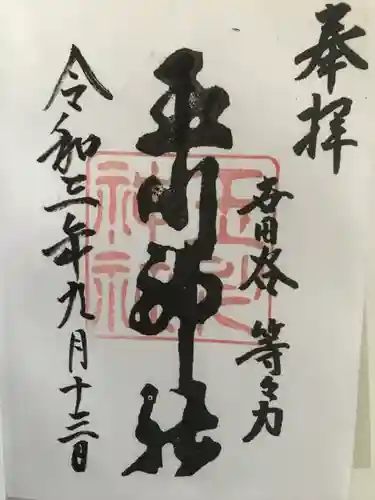 奉拝
世田谷 等々力
玉川神社
玉川
神社
令和三年九月十三日